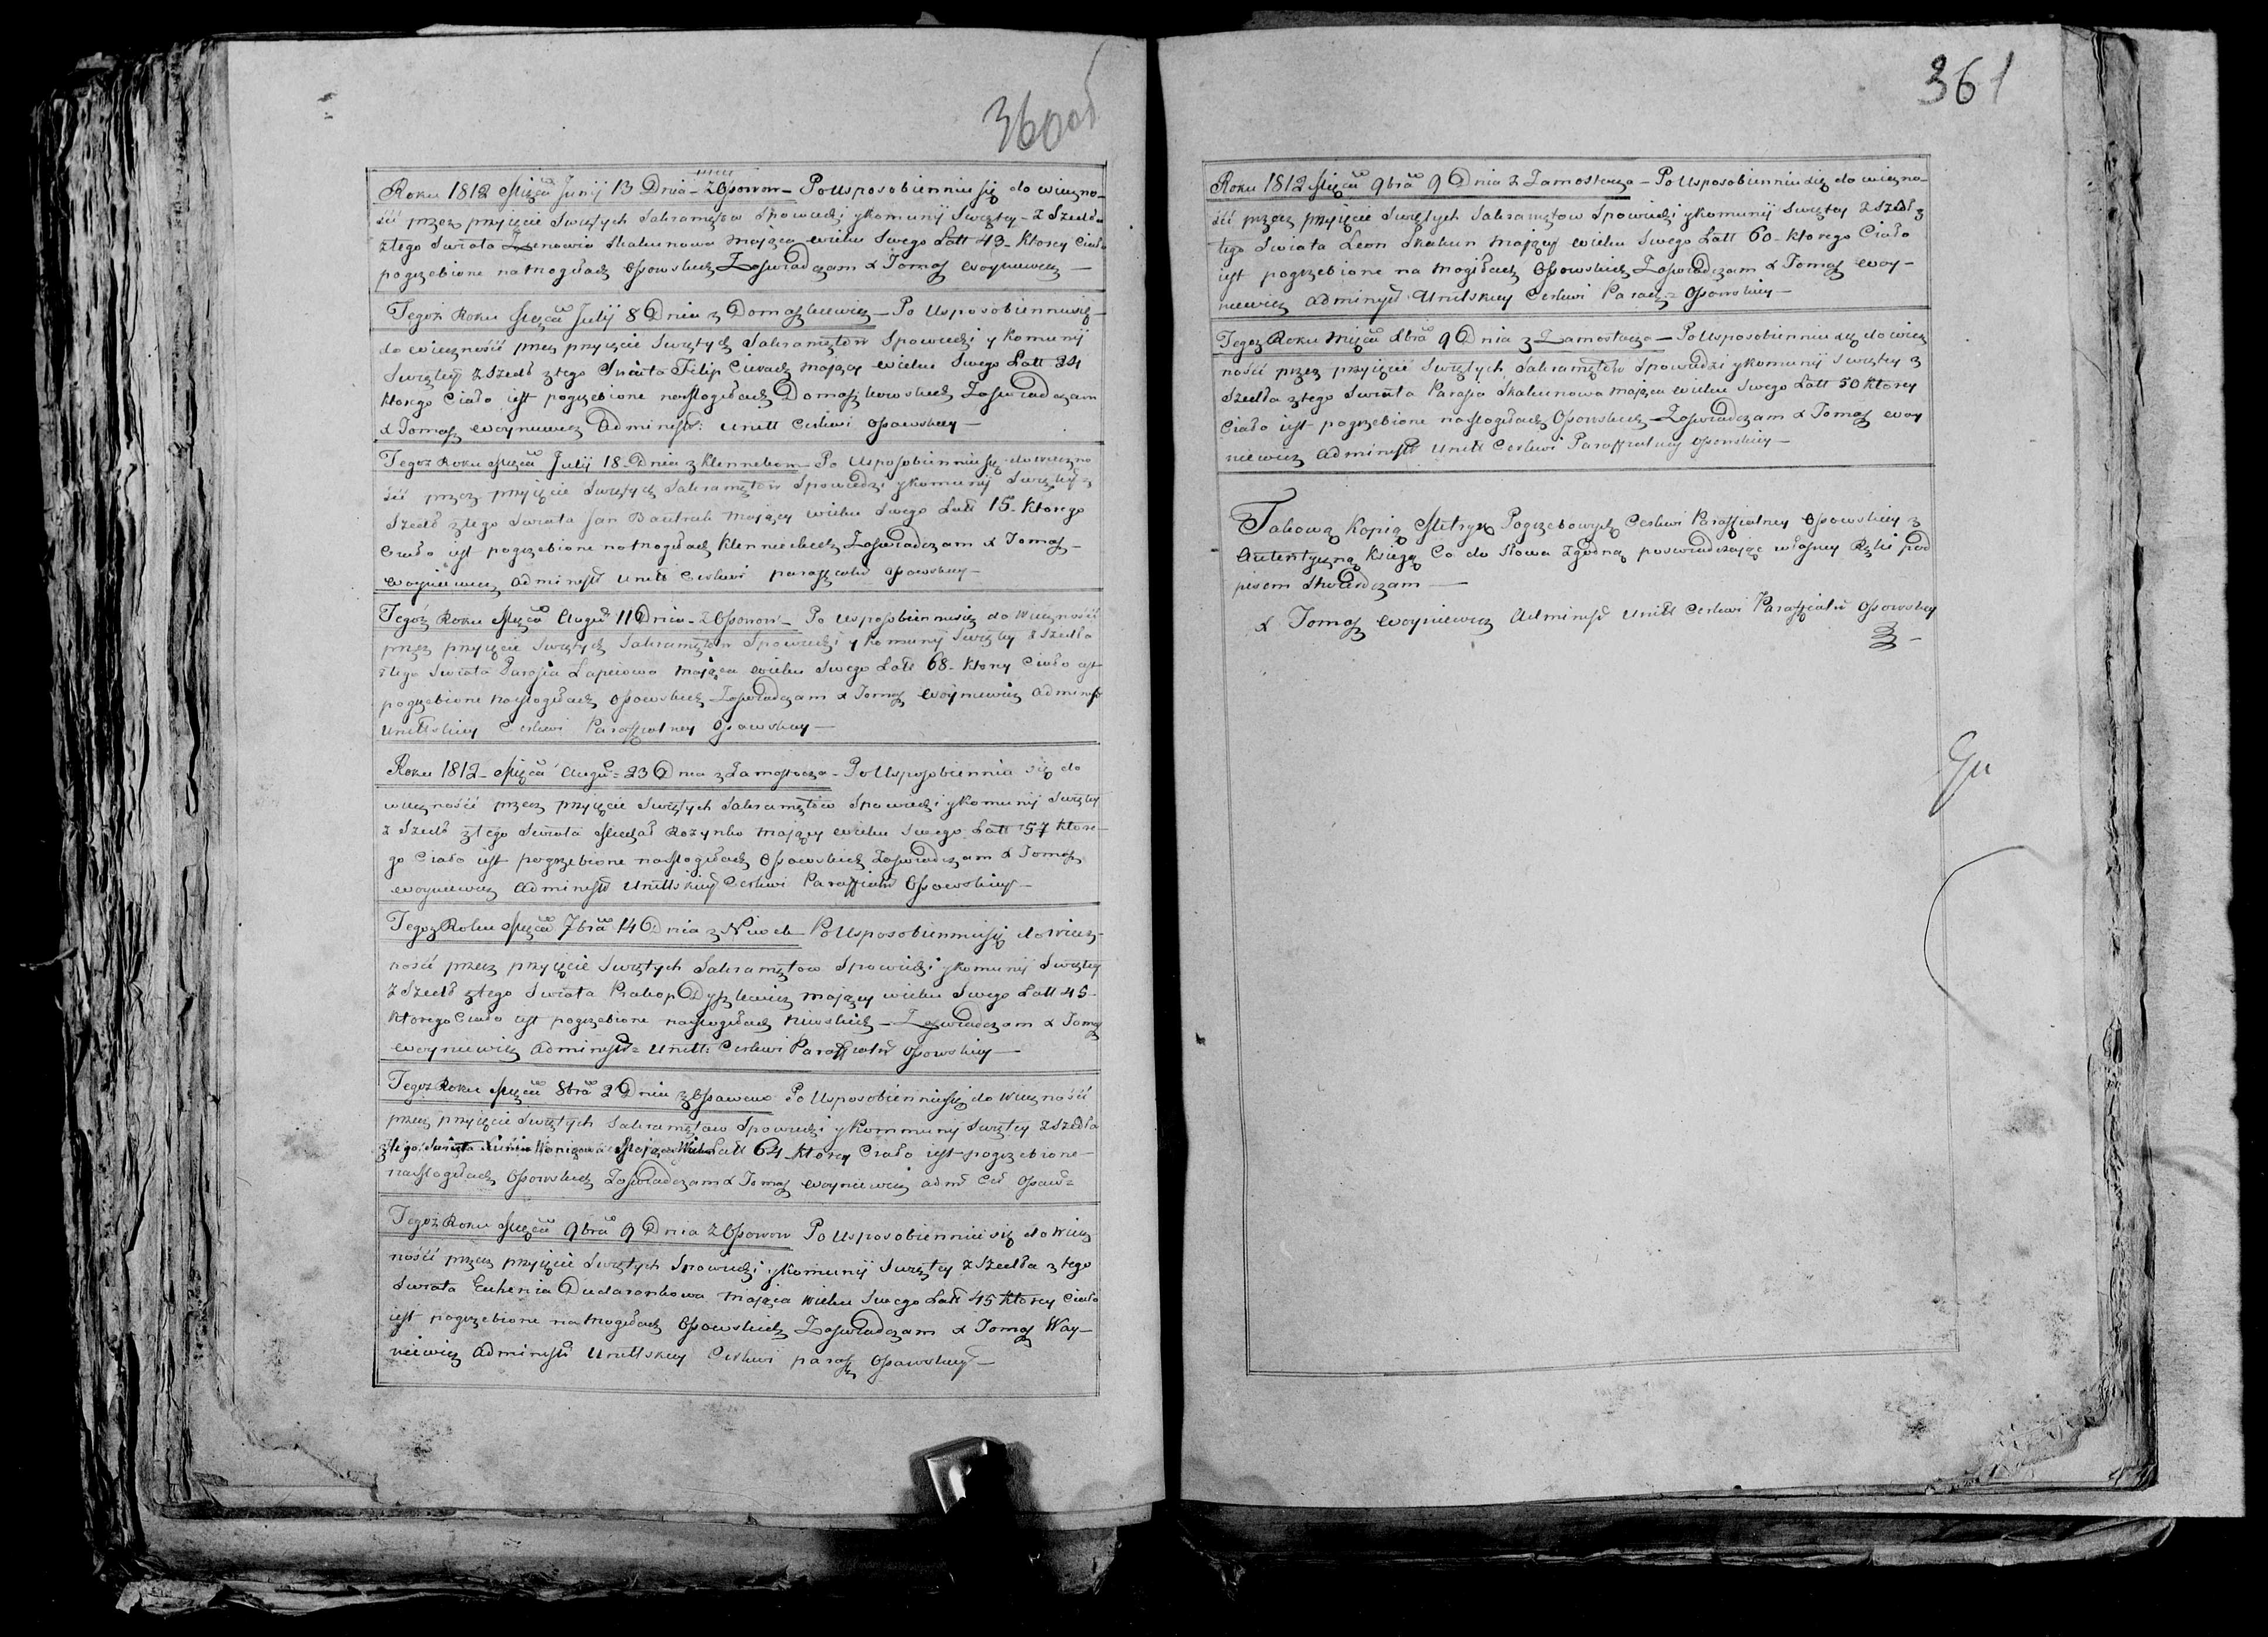 360 об
Roku 1812 Mięca Junij 13 Dnia - z Osowow - Po Usposobienniu się do wieczno-
ści przez przyięcie Swiętych Sakramętow Spowiedzi y Komunij Swiętey - z Szedła
z tego Swiata Zenowia Skakunowa Maiąca wieku Swego Latt 43 - Ktorey Ciało
pogrzebione na Mogiłach Osowskich Zaswiadczam X Tomasz Woyniewicz -
Tegoż Roku Mięca Julij 8 Dnia z Domaszkiewicz - Po Usposobienniu się
do wieczności przez przyięcie Swiętych Sakramętow Spowiedzi y Komunij
Swiętey z Szedł z tego Swiata Filip Mający wieku Swego Latt 34
Ktorego Ciało iest pogrzebione na Mogiłach Domaszkowskich Zaswiadczam
X Tomasz Woyniewicz Administr: Unitt Cerkwi Osowskiey -
Tegoż Roku Mięca Julij 18 Dnia z Klennekow - Po Usposobienniu się do wieczno
ści przez przyięcie Swiętych Sakramętow Spowiedzi y Komunij Swiętey z
Szedł z tego Swiata Jan Bautruk Mający wieku Swego Latt 15 - Ktorego
Ciało iest pogrzebione na Mogiłach Klennieckich Zaswiadczam X Tomasz -
Woyniewicz Administr Unitt Cerkwi Osowskiey -
Tegoż Roku Mięca Augu 11 Dnia - z Osowow - Po Usposobienniu się do Wieczności
przez przyięcie Swiętych Sakramętow Spowiedzi y Komunij Swiętey z Szedła
z tego Swiata Parasia Łapicowa Maiąca wieku Swego Latt 68 - Ktorey Ciało iest
pogrzebione na Mogiłach Osowskich - Zaswiadczam X Tomasz Woyniewicz Administr
Unittskiey Cerkwi Paraffialney Osowskiey -
Roku 1812 - Mięca Augu = 23 Dnia z Zamostocza - Po Usposobiennia się do
wieczności przez przyięcie Swiętych Sakramętow Spowiedzi y Komunij Swiętey
z Szedł z tego Swiata Michał Rożynko Mający wieku Swego Latt 57 Ktore-
go Ciało iest pogrzebione na Mogiłach Osowskich Zaswiadczam X Tomasz
Woyniewicz Administr Unittskiey Cerkwi Paraffialn Osowskiey -
Tegoż Roku Mięca 7bra 14 Dnia z Niwek Po Usposobienniu się do wiecz-
ności przez przyięcie Swiętych Sakramętow Spowiedzi y Komunij Swiętey
z Szedł z tego Swiata Prakop Dyszkiewicz Mający wieku Swego Latt 45 -
Ktorego Ciało iest pogrzebione na Mogiłach Niwskich - Zaswiadczam X Tomasz
Woyniewicz Administr = Unitt: Cerkwi Paraffialn Osowskiey -
Tegoż Roku Mięca 8bra 2 Dnia z Osowow Po Usposobienniu się do Wieczności
przez przyięcie Swiętych Sakramętow Spowiedzi y Kommunij Swiętey z Szedła
z tego Swiata Maiąca Wieku Latt 64 - Ktorey Ciało iest pogrzebione -
na Mogiłach Osowskich Zaswiadczam X Tomasz Woyniewicz
Tegoż Roku Mięca 9bra 9 Dnia z Osowow Po Usposobienniu się do Wiecz
ności przez przyięcie Swiętych Spowiedzi y Komunij Swiętey z Szedła z tego
Swiata Eukenia Dudaronkowa Maiąca wieku Swego Latt 45 Ktorey Ciało
iest pogrzebione na Mogiłach Osowskich Zaswiadczam X Tomasz Woy-
niewicz Administr Unittskiey Cerkwi Osowskiey -
361
Roku 1812 Mięca 9bra 9 Dnia z Zamostocza - Po Usposobienniu się do wieczno-
ści przez przyięcie Swiętych Sakramętow Spowiedzi y Komunij Swiętey z Szedł z
tego Swiata Leon Skakun Mający wieku Swego Latt 60 - Ktorego Ciało
iest pogrzebione na Mogiłach Osowskich Zaswiadczam X Tomasz Woy-
niewicz Administr Unitskiey Cerkwi Osowskiey -
Tegoż Roku Mięca Xbra 9 Dnia z Zamostocza - Po Usposobienniu się do wiecz
ności przez przyięcie Swiętych Sakramętow Spowiedzi y Komunij Swiętey z
Szedła z tego Swiata Parasia Skakunowa Maiąca wieku Swego Latt 50 Ktorey
Ciało iest pogrzebione na Mogiłach Osowskich - Zaswiadczam X Tomasz Woy
niewicz Administr Unitt Cerkwi Paraffialney Osowskiey -
Takową Kopię Metryk Pogrzebowych Cerkwi Paraffialney Osowskiey z
Autentyczną Księgą Co do Słowa Zgodną poswiadczaiąc własney Ręki pod
pisem Stwierdzam -
X Tomasz Woyniewicz Administr Unitt Cerkwi Paraffialn Osowskiey